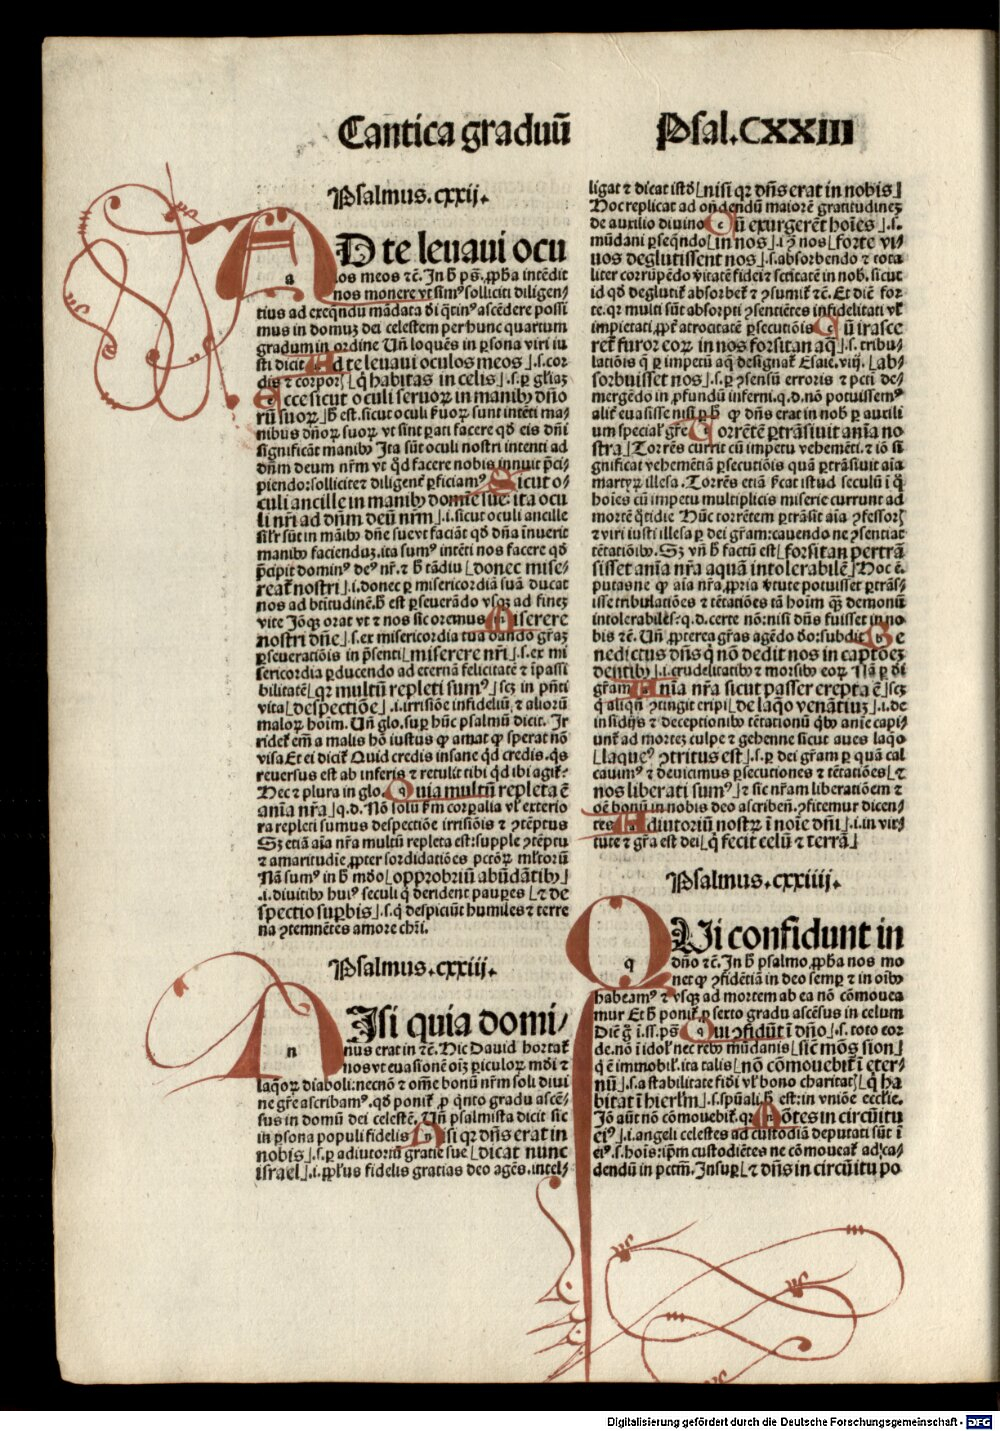 Cantica graduū Psal.CXXIII
Psalmus.cxxij.
AD te leuaui ocu
los meos ⁊č. In ħ ps̄. ꝓpħa intēdit
nos monere vt simꝰ solliciti diligen/
tius ad exeqndu mādata di q̄tinꝰ ascēdere possi
mus in domuꝫ dei celestem per hunc quartum
gradum in ordine Uñ loquēs in ꝑsona viri iu
sti dicit Ad te leuaui oculos meos ⌋.s.cor
dis ⁊ corporꝭ ⌊q̄ habitas in celis⌋.s.ꝑ gl̄iaꝫ
Ecce sicut oculi seruoꝝ in manibꝰ dño
rū suoꝝ⌋ħ est.sicut oculi ẜuoꝝ sunt intēti ma/
nibus dñoꝝ suoꝝ vt sint ꝑati facere qd̄ eis dñi
significāt manibꝰ Ita sūt oculi nostri intenti ad
dñm deum nr̄m vt q̄d facere nobis innuit p̄ci/
piendo:sollicite ⁊ diligenť ꝑficiamꝰ Sicut o/
culi ancille in manibꝰ domīe sue ita ocu
li nr̄i ad dñm deū nr̄m⌋.i.sicut oculi ancille
sil'r sūt in māibꝰ dñe suevt faciāt qd̄ dña īnuerit
manibꝰ faciendūꝫ.ita sumꝰ intēti nos facere qd̄
p̄cipit dominꝰ deꝰ nr̄.⁊ ħ tādiu⌊donec mise/
reať nostri⌋.i.donec ꝑ misericordiā suā ducat
nos ad btitudinē.ħ est ꝑseuerādo vsqꝫ ad fineꝫ
vite Jōqꝫ orat vt ⁊ nos sic oremus Miserere
nostri dñe⌋.s.ex misericordia tua dando gr̄aꝫ
ꝑseueratiōis in p̄senti⌊miserere nr̄i⌋.s.ex mi
sericordia ꝑducendo ad eternā felicitatē ⁊ īpassi
bilitatē⌊qꝛ multū repleti sumꝰ⌋scꝫ in p̄nti
vita⌊despectiōe⌋.i.irrisiōe infideliū ⁊ alioꝛū
maloꝝ hoīm. Uñ glo.suꝑ hūc psalmū dicit. Ir
rideť em̄ a malis hō iustus ꝙ amat ꝙ sperat nō
visa Et ei diciť Quid credis insane q̄d credis.qs
reuersus est ab inferis ⁊ retulit tibi q̄d ibi agiť:
Hec ⁊ plura in glo. Quia multū repleta ē
anīa nr̄a⌋q.d. Nō solū ẜm corꝑalia vľ exterio
ra repleti sumus despectiōe irrisiōis ⁊ ꝯtēptus
Sꝫ etiā aīa nr̄a multū repleta est:supple ꝯtēptu
⁊ amaritudīe ꝓpter sordidatiōes pctōꝝ mľtoꝛū
Nā sumꝰ in ħ mdo⌊opprobriū abūdātibꝰ⌋
.i.diuitibꝰ huiꝰ seculi q̄ derident pauꝑes⌊⁊ de
spectio suꝑbis⌋.s.q̄ despiciūt humiles ⁊ terre
na ꝯtemnētes amore chr̄i.
Psalmus.cxxiij.
NIsi quia domi/
nus erat in ⁊č. Hic Dauid hortať
nos vt euasionē oīꝫ ꝑiculoꝝ mdi ⁊
laq̄oꝝ diaboli:necnō ⁊ om̄e bonū nr̄m soli diui
ne gr̄e ascribamꝰ.qd̄ poniť ꝓ q̄nto gradu ascē/
sus in domū dei celestē. Uñ psalmista dicit sic
in ꝑsona populi fidelis Nisi qꝛ dñs erat in
nobis⌋.s.ꝑ adiutoriū gratie sue⌊dicat nunc
israel⌋.i.ppľus fidelis gratias deo agēs.intel/
ligat ⁊ dicat istd̄⌊nisi qꝛ dñs erat in nobis⌋
Hoc replicat ad ondendū maiorē gratitudineꝫ
de auxilio diuino Cū exurgerēt hoīes⌋.i.
mūdani ꝑseqndo⌊in nos⌋.i ꝯ nos⌊forte vi/
uos deglutissent nos⌋.s.absorbendo ⁊ tota
liter corrupēdo v̄itatē fidei ⁊ sctitatē in nob̄. sicut
id qd̄ degluťiť absorbeť ⁊ ꝯsumiť ⁊č. Et dic̄ for
te.qꝛ multi sūt absorpti ꝯsentiētes infidelitati vľ
impietati ꝓpť atrocitatē ꝑsecutiōis Cū irasce
reť furor eoꝝ in nos forsitan aq̄⌋.i.tribu/
latiōis q̄ ꝑ impetū aq̄ designať Esaie.viij.⌊ab/
sorbuisset nos⌋.s.ꝑ ꝯsensū erroris ⁊ pcti de/
mergēdo in ꝓfundū inferni.q.d.nō potuissemꝰ
aliť euasisse nisi ꝑ ħ ꝙ dñs erat in nob̄ ꝑ auxili
um special' gr̄e Torrētē ꝑtrāsiuit anīa no
stra⌋Torrēs currit cū impetu vehemēti.⁊ iō si
gnificat vehemētiā ꝑsecutiōis quā ꝑtrāsiuit aīa
martyꝝ illesa. Torrēs etiā ẜcat istud seculū ī q̄
hoīes cū impetu multiplicis miserie currunt ad
mortē q̄tidie Hūc torrētem ꝑtrāsit aīa ꝯfessoꝝ
⁊ viri iusti illesa ꝑ dei gr̄am:cauendo ne ꝯsentiat
tētatiōibꝰ. Sꝫ vñ ħ factū est⌊forsitan pertrā
sisset anīa nr̄a aquā intolerabilē⌋Hoc ē.
putasne ꝙ aīa nr̄a.ꝓpria v̄tute potuisset ꝑtrās/
isse tribulatiōes ⁊ tētatiōes tā hoīm q̄ꝫ demonū
intolerabiles:q.d.certe nō:nisi dñs fuisset in no
bis ⁊č. Uñ ꝓpterea gr̄as agēdo dō:subdit Be
nedictus dñs q̄ nō dedit nos in captōeꝫ
dentibꝰ⌋.i.crudelitatibꝰ ⁊ morsibꝰ eoꝝ Nā ꝑ di
gr̄am Anīa nr̄a sicut passer erepta ē⌋scꝫ
q̄ aliqn̄ ꝯtingit eripi⌊de laq̄o venātiuꝫ⌋.i.de
insidijs ⁊ deceptionibꝰ tētationū q̄bꝰ anīe capi/
unť ad morteꝫ culpe ⁊ gehenne sicut aues laq̄o
⌊laqueꝰ ꝯtritus est⌋.s.ꝑ dei gr̄am ꝑ quā cal
cauimꝰ ⁊ deuicimus ꝑsecutiones ⁊ tētatiōes⌊⁊
nos liberati sumꝰ⌋⁊ sic nr̄am liberatiōem ⁊
oē bonū in nobis deo ascribeñ.ꝯfitemur dicen/
tes Adiutoriū nostꝝ ī noīe dñi⌋.i.in vir/
tute ⁊ gr̄a est dei⌊q̄ fecit celū ⁊ terrā⌋
Psalmus.cxxiiij.
QUi confidunt in
dño ⁊č. In ħ psalmo.ꝓpħa nos mo
net ꝙ ꝯfidētiā in deo semꝑ ⁊ in oībꝰ
habeamꝰ ⁊ vsqꝫ ad mortem ab ea nō cōmouea
mur Et ħ poniť ꝓ sexto gradu ascēsus in celum
Dic̄ g̊ i.ss.ps̄ Qui ꝯfidūt ī dño⌋.s.toto cor
de.nō ī idol' nec rebꝰ mūdanis⌊sic̄ mōs sion⌋
q̄ ē immobil'.ita talis⌊nō cōmouebiť ī eter/
nū⌋.s.a stabilitate fidī vľ bono charitatꝭ⌊q̄ ha
bitat ī hierľm⌋.s.sp̄uāli.ħ est:in vniōe eccľie.
Jō aūt non cōmouebiť.qꝛ Mōtes in circūitu
eiꝰ⌋.i.angeli celestes ad custodiā deputati sūt ī
eiꝰ.s.hoīs:ip̄m custodiētes ne cōmoueať ad ca/
dendū in pctm̄. Insuꝑ⌊⁊ dñs in circūitu po
Digitalisierung gefördert durch die Deutsche Forschungsgemeinschaft - DFG